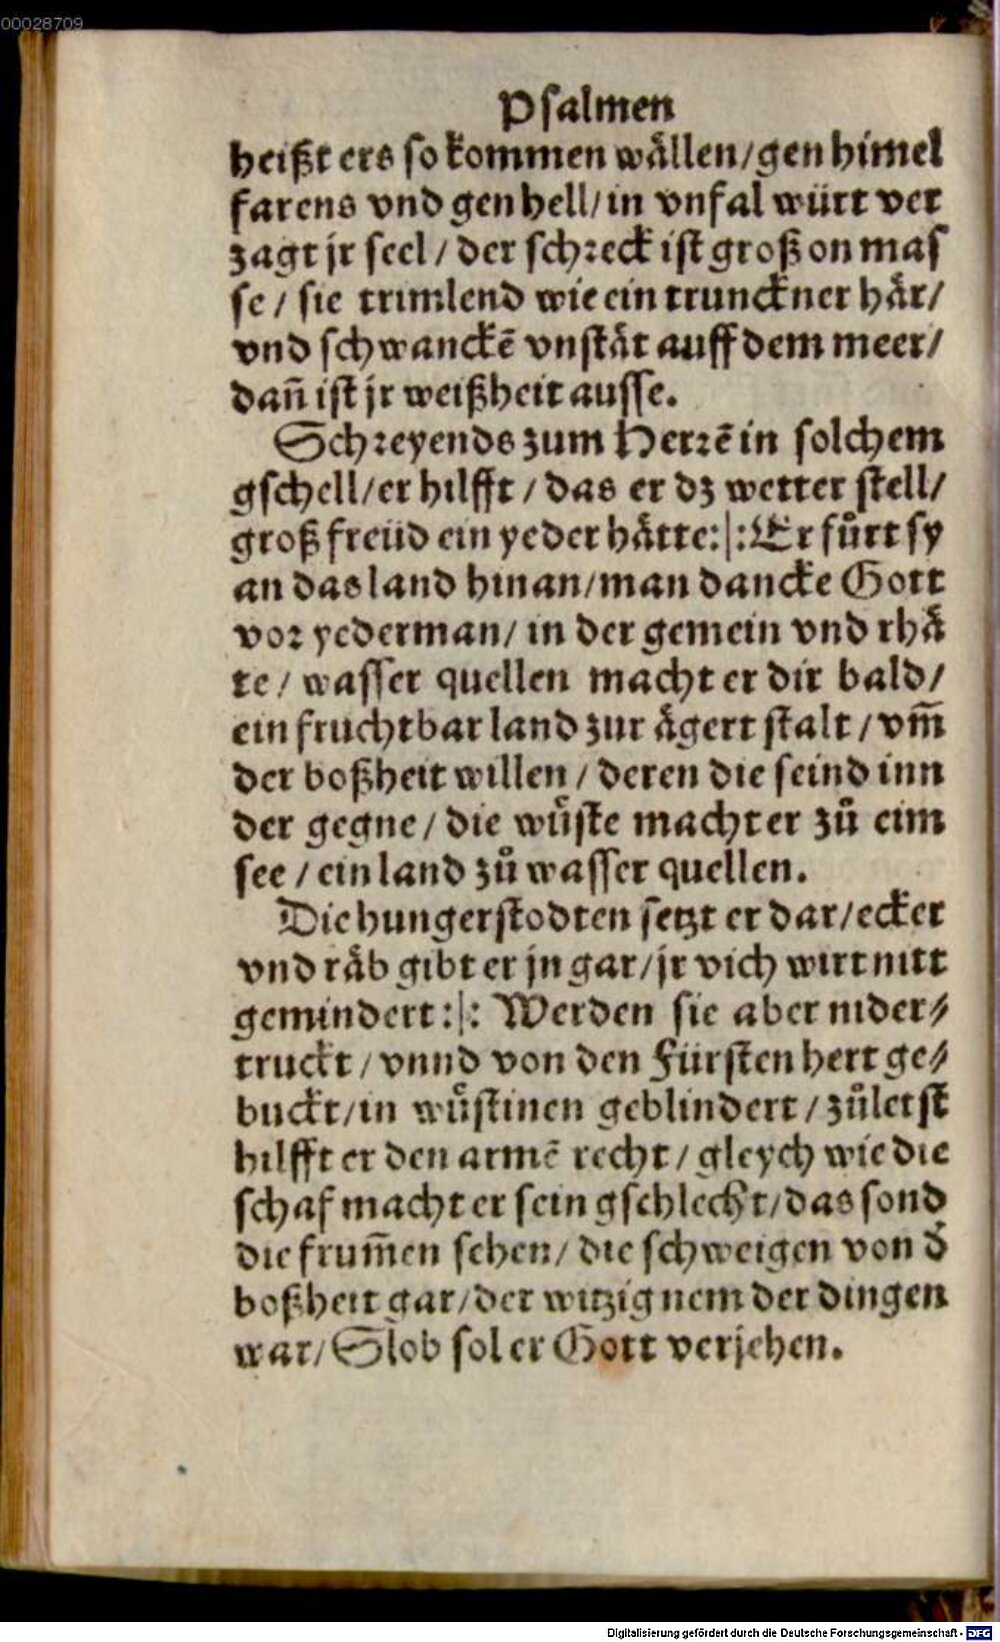 00028709
Psalmen
heißt ers so kommen wällen/gen himel
farens vnd gen hell/in vnfal würt ver
zagt jr seel/der schreck ist groß on mas
se/sie trimlend wie ein trunckner här/
vnd schwanckē vnstät auff dem meer/
dañ ist jr weißheit ausse.
Schreyends zum Herrē in solchem
gschell/er hilfft/das er dz wetter stell/
groß freüd ein yeder hätte:|:Er fůrt sy
an das land hinan/man dancke Gott
vor yederman/in der gemein vnd rhä
te/wasser quellen macht er dir bald/
ein fruchtbar land zur ägert stalt/vm̃
der boßheit willen/deren die seind inn
der gegne/die wůste macht er zů eim
see/ein land zů wasser quellen.
Die hungerstodten setzt er dar/ecker
vnd räb gibt er jn gar/jr vich wirt nitt
gemindert:|: Werden sie aber nider⸗
truckt/vnnd von den Fürsten hert ge⸗
buckt/in wůstinen geblindert/zůletst
hilfft er den armē recht/gleych wie die
schaf macht er sein gschlecht/das sond
die frum̃en sehen/die schweigen von d̓
boßheit gar/der witzig nem der dingen
war/Slob sol er Gott verjehen.
Digitalisierung gefördert durch die Deutsche Forschungsgemeinschaft - DFG